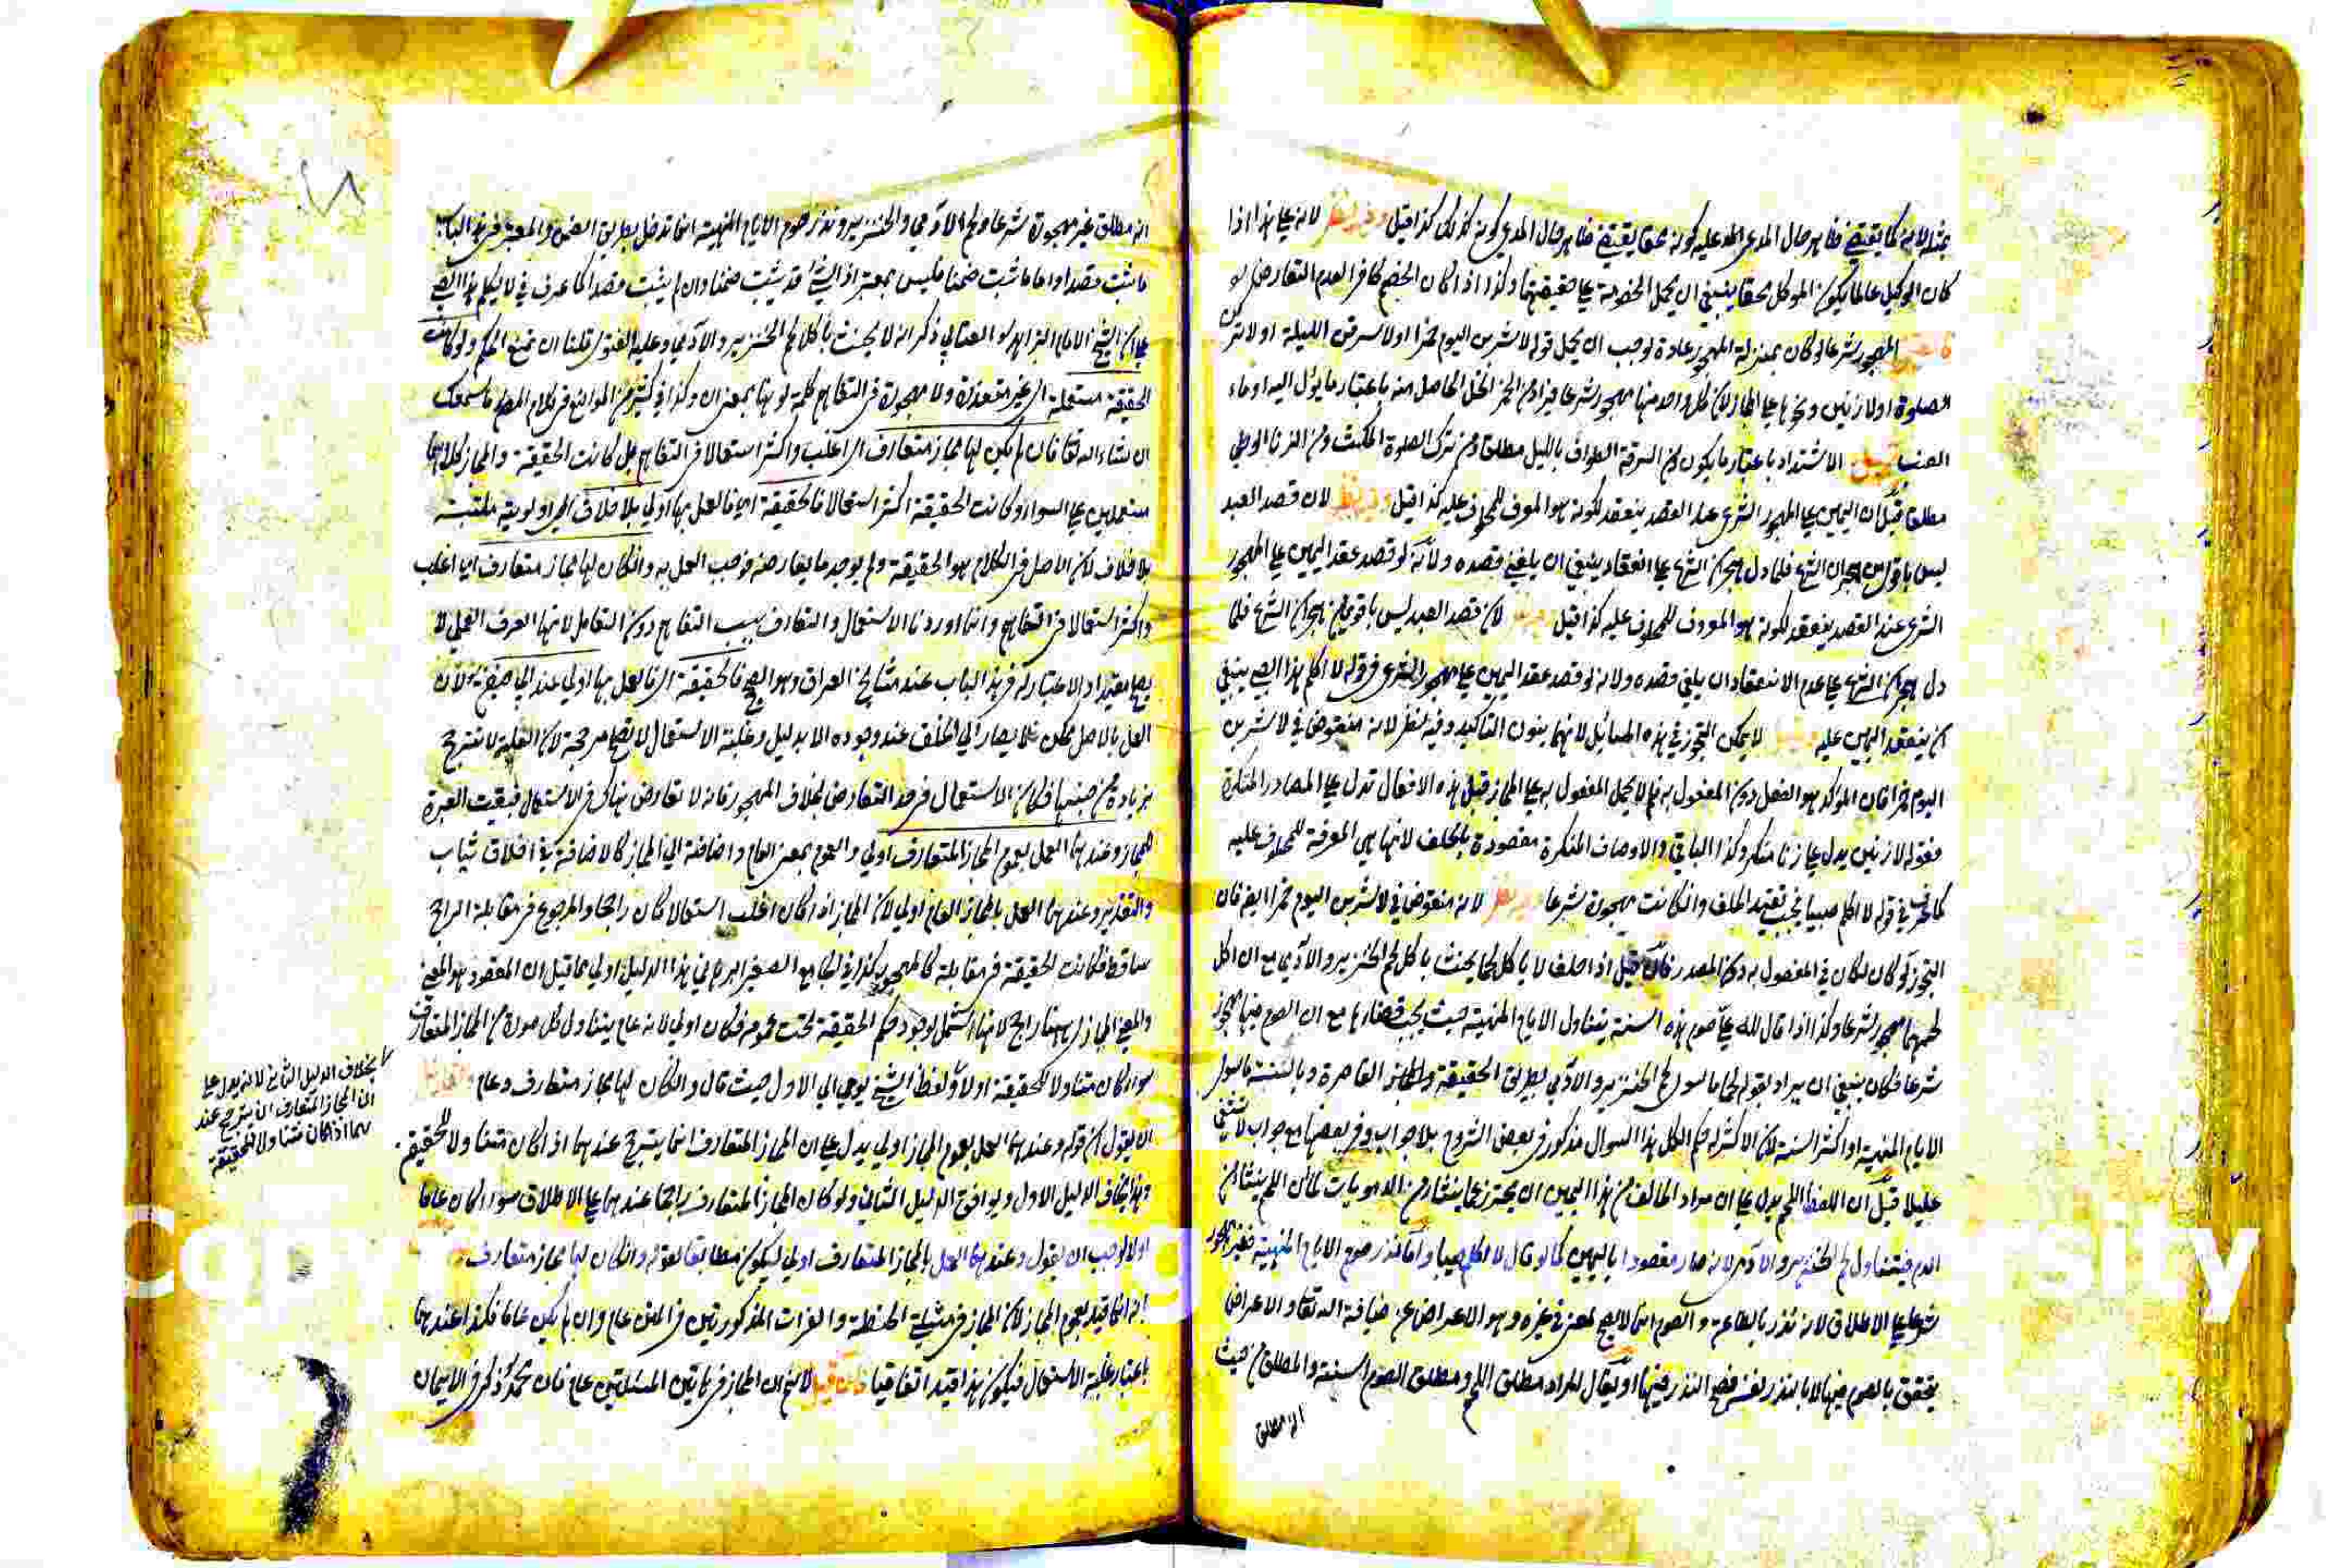 بمثله لانه كما يقتضي ظاهر حال المدعى عليه كونه محقا يقتضي ظاهر حال المدعي كونه كذلك كذا قيل وفيه نظر لانه على هذا اذا
كان الوكيل عالما بكون الموكل محقا ينبغي ان يحمل الخصومة على حقيقتها وكذا اذا كان الخصم كافرا لعدم التعارض لو
المهجور شرعا لو كان بمنزلة المهجور عادة لوجب ان يحمل قوله لاشربن اليوم خمرا او لاسرقن الليلة او لاتركن
الصلوة او لازنين ونحوها على المجاز لان كل واحد منها مهجور شرعا فيراد من الخمر الخل الحاصل منه باعتبار ما يؤل اليه او ماء
العنب الاشتداد باعتبار ما يكون ومن السرقة الطواف بالليل مطلقا ومن ترك الصلوة المكث ومن الزنا الوطي
مطلقا قيل ان اليمين على المهجور الشرعي عند القصد ينعقد لكونه هو المعرف للمحلوف عليه كذا قيل وفيه نظر لان قصد العبد
ليس باقوى من هجران الشرع فلما دل هجران الشرع على انعقاد ينبغي ان يلغي قصده ولانه لو قصد عقد اليمين على المهجور
الشرعي عند القصد ينعقد لكونه هو المعروف للمحلوف عليه كذا قيل لان قصد العبد ليس باقوى من هجران الشرع فلما
دل هجران الشرع على عدم الانعقاد ان يلغي قصده ولانه لو قصد عقد اليمين على مهجور الشرعي في قوله لا اكلم هذا الصبي ينبغي
ان ينعقد اليمين عليه لا يمكن التجوز في هذه المسائل لانها بنون التاكيد وفيه نظر لانه منقوض في لاشربن
اليوم خمرا فان المؤكد هو الفعل دون المفعول به فلم لا يحمل المفعول به على المجاز قيل هذه الافعال تدل على المصادر المنكرة
فقوله لازنين يدل على زنا منكر وكذا الباقي والاوصاف المنكرة مقصودة بالحلف لانها هي المعرفة للمحلوف عليه
كما عرف في قوله لا اكلم صبيا فيجب تقييد الحلف وان كانت مهجورة شرعا وفيه نظر لانه منقوض في لاشربن اليوم خمرا ايضا فان
التجوز لو كان لكان في المفعول به دون المصدر فان قيل اذا حلف لا ياكل لحما يحنث باكل لحم الخنزير والآدمي مع ان اكل
لحمهما مهجور شرعا وكذا اذا قال لله علي صوم هذه السنة يتناول الايام المنهية حيث يجب قضاؤها مع ان الصوم فيها مهجور
شرعا فكان ينبغي ان يراد بقوله لحما ما سوى لحم الخنزير والآدمي بطريق الحقيقة القاصرة وبالسنة ما سوى
الايام المنهية او اكثر السنة لان الاكثر له حكم الكل هذا السؤال مذكور في بعض الشروح بلا جواب وفي بعضها مع جواب لا يشفي
عليلا قيل ان اللفظ اللحم يدل على ان مراد الحالف من هذا اليمين ان يحترز عما ينشأ من الدمويات لان اللحم ينشأ من
الدم فيتناول لحم الخنزير والآدمي لانه صار مقصودا باليمين كما لو قال لا اكلم صبيا واما نذر صوم الايام المنهية فغير مهجور
شرعا على الاطلاق لانه نذر بالطاعة والصوم انما لا يصح لمعنى في غيره وهو الاعراض عن ضيافة الله تعالى والاعراض
يتحقق بالصوم فيها لا بالنذر نفسه فصح النذر فيها او يقال المراد مطلق اللحم ومطلق الصوم السنة والمطلق من حيث
انه مطلق
انه مطلق غير مهجورة شرعا ولحم الآدمي والخنزير ونذر صوم الايام المنهية انما تدخل بطريق الضمن والمعتبر في هذا الباب
ما ثبت قصدا واما ما ثبت ضمنا فليس بمعتبر اذ الشئ قد يثبت ضمنا وان لم يثبت قصدا كما عرف في لا يكلم هذا الصبي
على ان الشيخ الامام الزاهد العتابي ذكر انه لا يحنث باكل لحم الخنزير والآدمي وعليه الفتوى قلنا ان نمنع الحكم ولو كانت
الحقيقة مستعملة اي غير متعذرة ولا مهجورة في التفاهم كلمة لو هنا بمعنى ان وكذا في كثير من المواضع في كلام المص ما سمعك
ان شاء الله تعالى فان لم يكن لها مجاز متعارف اي اغلب واكثر استعمالا في التفاهم بل كانت الحقيقة والمجاز كلاهما
مستعملين على السواء او كانت الحقيقة اكثر استعمالا فالحقيقة اي فالعمل بها اولى بلا خلاف اي اولوية ملتبسة
بلا خلاف لان الاصل في الكلام هو الحقيقة ولم يوجد ما يعارضه فوجب العمل به وان كان لها مجاز متعارف اي اغلب
واكثر استعمالا في التفاهم وانما اوردنا الاستعمال والتعارف بسبب التفاهم دون التعامل لانها العرف العملي لا
يصلح مقيدا ولا اعتبار له في هذا الباب عند مشايخ العراق وهو الصحيح فالحقيقة اي فالعمل بها اولى عند ابي حنيفة لان
العمل بالاصل ممكن فلا يصار الى الخلف عند وجوده الا بدليل وغلبة الاستعمال لا يصلح مرجحة لان العلة لا تترجح
بزيادة من جنسها فكان الاستعمال في حد التعارض بخلاف المهجور فانه لا تعارض هناك في الاستعمال فبقيت العبرة
للمجاز وعندهما العمل بعموم المجاز المتعارف اولى والعموم بمعنى العام واضافته الى المجاز كالاضافة في اخلاق ثياب
والتقدير وعندهما العمل بالمجاز العام اولى لان المجاز اذا كان اغلب استعمالا كان راجحا والمرجوح في مقابلة الراجح
ساقط فكانت الحقيقة في مقابلة كالمهجور كذا في الجامع الصغير البرهاني هذا الدليل اولى مما قيل ان المقصود هو المعنى
والمعنى المجازي ههنا راجح لانها اشتمل لوجود حكم الحقيقة تحت عمومه فكان اولى لانه عام يتناول كل صورة من المجاز المتعارف
سواء كان متناولا للحقيقة او لا ولفظ الشيخ يومي الى الاول حيث قال وان كان لها مجاز متعارف وعام
ان يقول ان قوله وعندهما العمل بعموم المجاز اولى يدل على ان المجاز المتعارف انما يترجح عندهما اذا كان متناولا للحقيقة
وهذا يخالف الدليل الاول ويوافق الدليل الثاني ولو كان المجاز المتعارف راجحا عندهما على الاطلاق سواء كان عاما
او لا لوجب ان يقول وعندهما العمل بالمجاز المتعارف اولى ليكون مطابقا لقوله وان كان لها مجاز متعارف
انه انما قيد بعموم المجاز لان المجاز في مسئلة الحنطة والفرات المذكورتين في المتن عام وان لم يكن عاما فكذا عندهما
باعتبار غلبة الاستعمال فيكون هذا قيدا اتفاقيا فان قيل لا نسلم ان المجاز في هاتين المسئلتين عام فان محمد ذكر في الايمان
بخلاف الدليل الثاني لانه يدل على
ان المجاز المتعارف ان يترجح عند
هما اذا كان متناولا للحقيقة